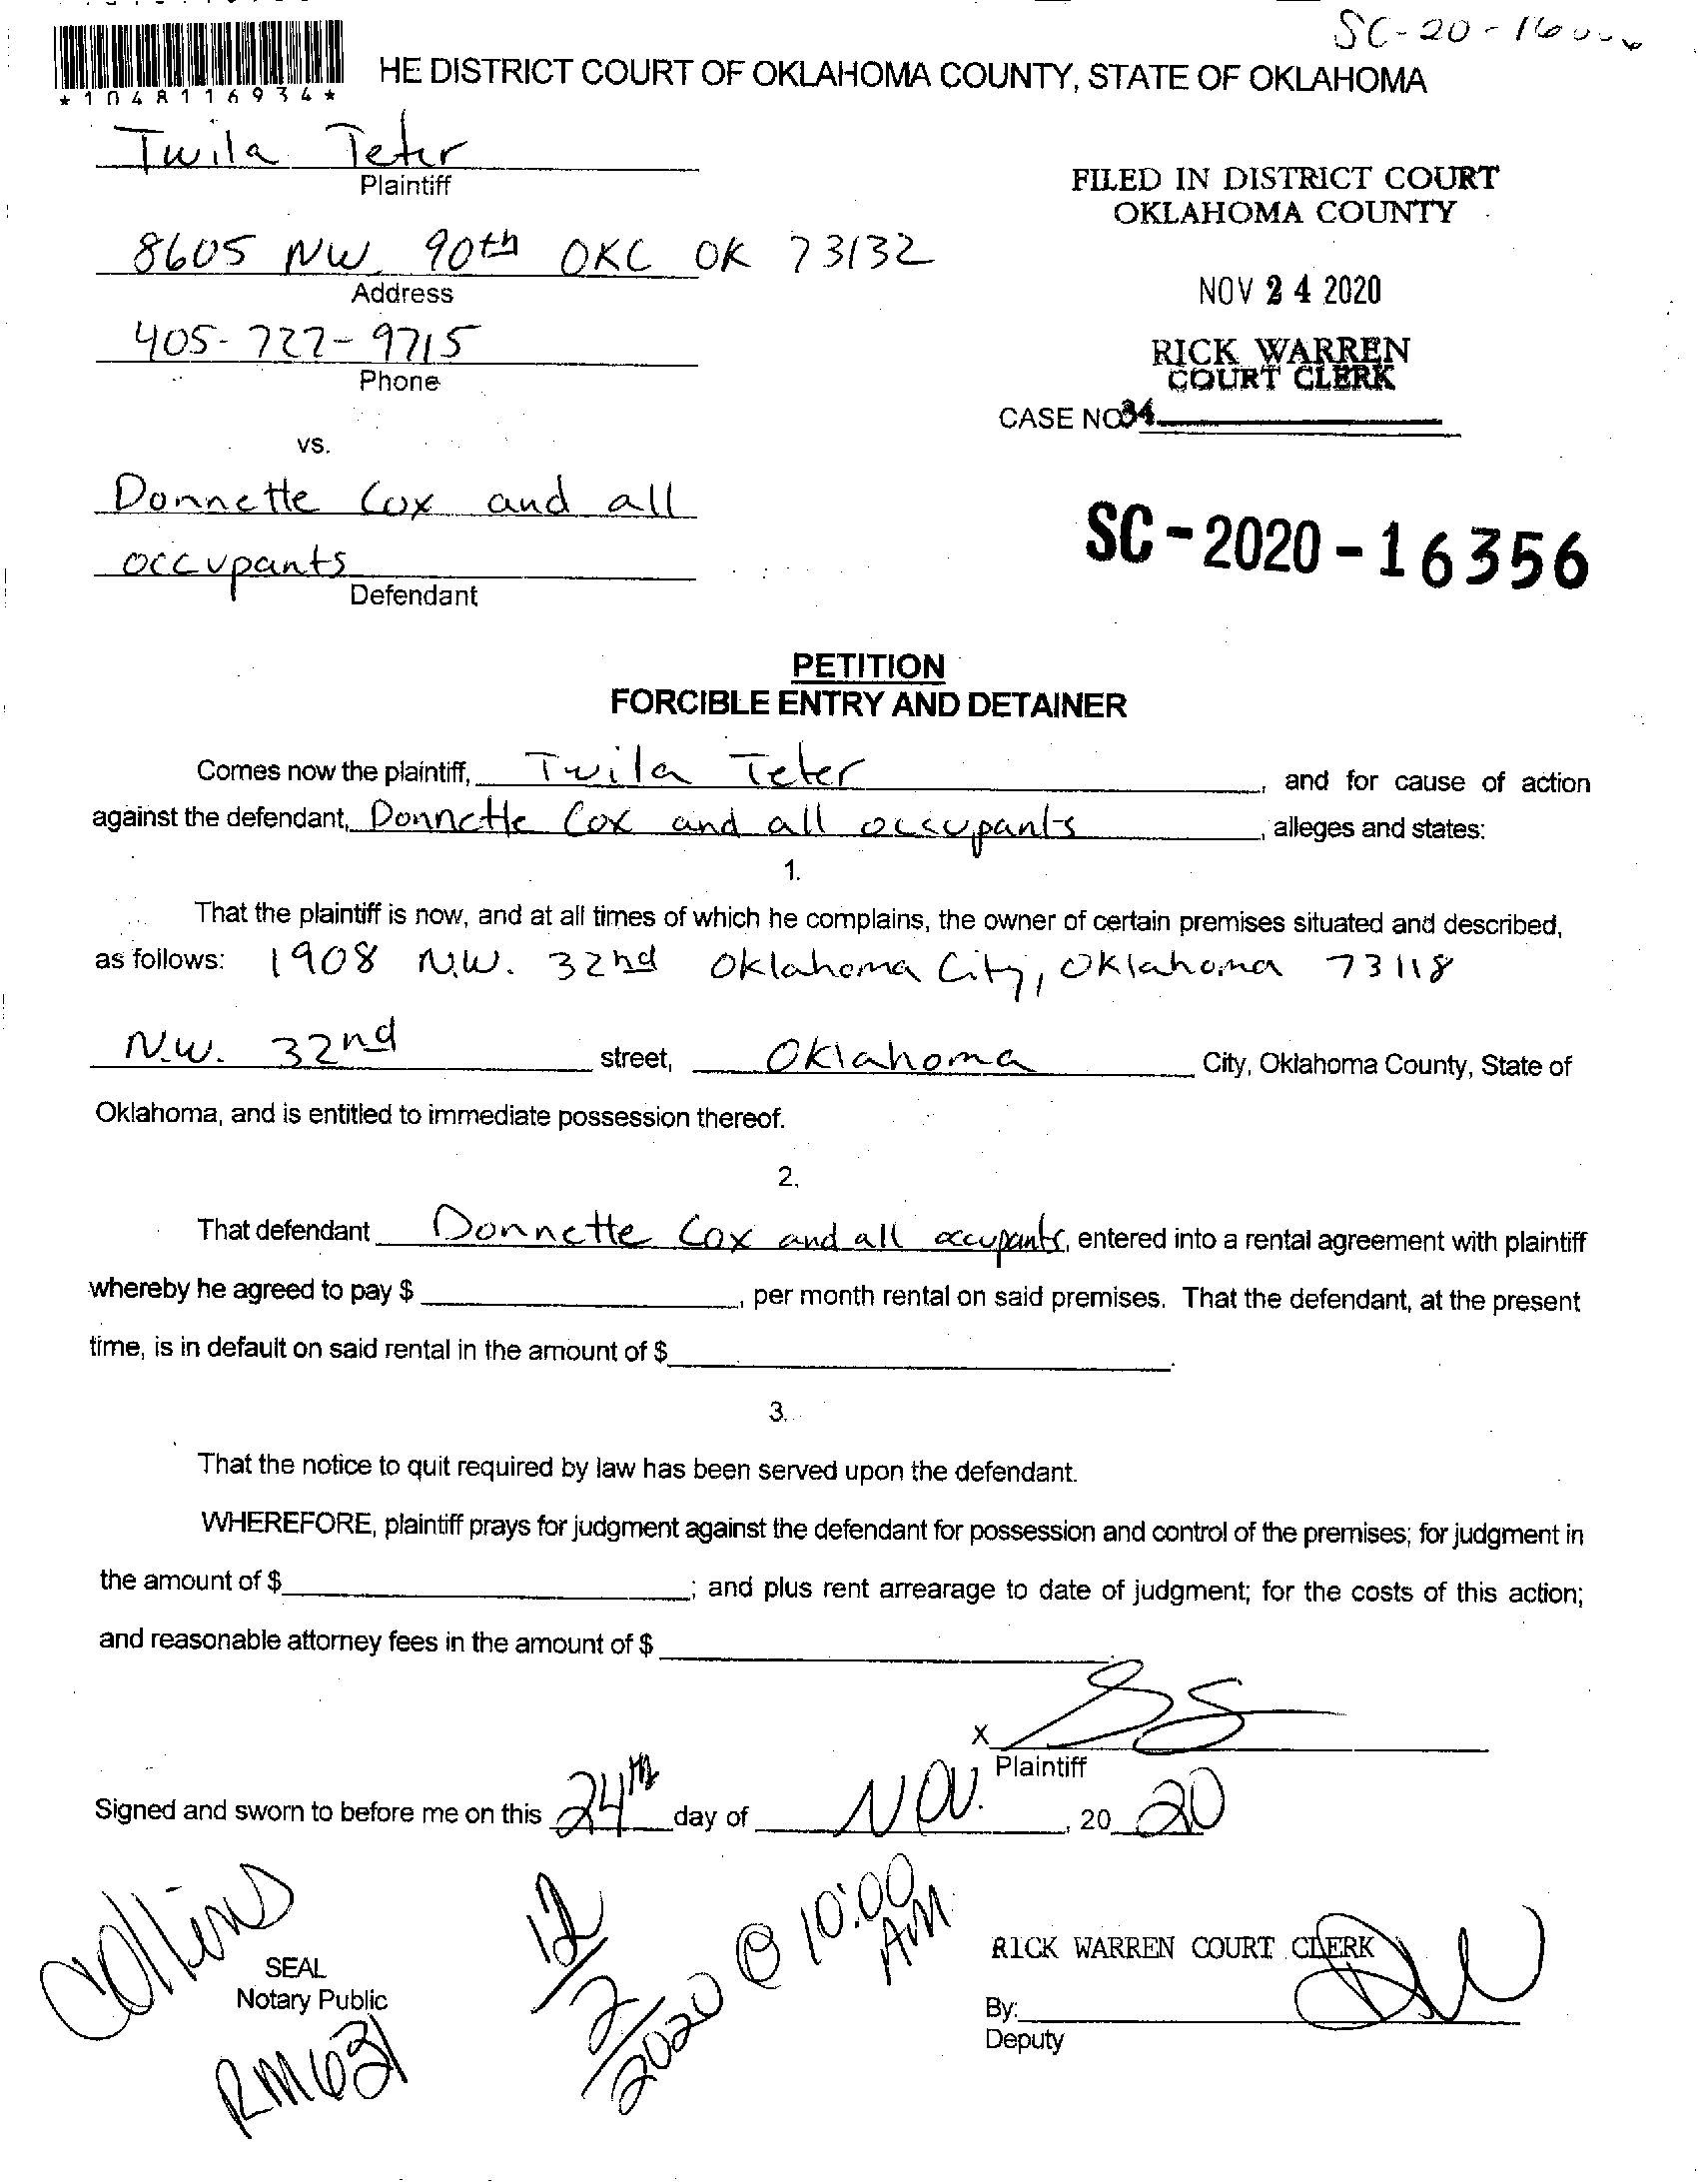 SC-20-16
HE DISTRICT COURT OF OKLAHOMA COUNTY, STATE OF OKLAHOMA
*1048116934*
Twila Teter
Plaintiff
FILED IN DISTRICT COURT
OKLAHOMA COUNTY
8605 NW 90th OKC OK 73132
Address
NOV 24 2020
405-727-9715
Phone
RICK WARREN
COURT CLERK
CASE NO 34
vs.
Donnette Cox and all
occupants
Defendant
SC-2020-16356
PETITION
FORCIBLE ENTRY AND DETAINER
Comes now the plaintiff, Twila Teter, and for cause of action
against the defendant, Donnette Cox and all occupants, alleges and states:
1.
That the plaintiff is now, and at all times of which he complains, the owner of certain premises situated and described,
as follows: 1908 N.W. 32nd Oklahoma City, Oklahoma 73118
N.W. 32nd street, Oklahoma City, Oklahoma County, State of
Oklahoma, and is entitled to immediate possession thereof.
2.
That defendant Donnette Cox and all occupants, entered into a rental agreement with plaintiff
whereby he agreed to pay $ , per month rental on said premises. That the defendant, at the present
time, is in default on said rental in the amount of $ .
3.
That the notice to quit required by law has been served upon the defendant.
WHEREFORE, plaintiff prays for judgment against the defendant for possession and control of the premises; for judgment in
the amount of $ ; and plus rent arrearage to date of judgment; for the costs of this action;
and reasonable attorney fees in the amount of $ .
X
Plaintiff
Signed and sworn to before me on this 24th day of NOV. , 20 20
Collins
12/2/2020 @ 10:00 AM
SEAL
Notary Public
RM 631
RICK WARREN COURT CLERK
By:
Deputy